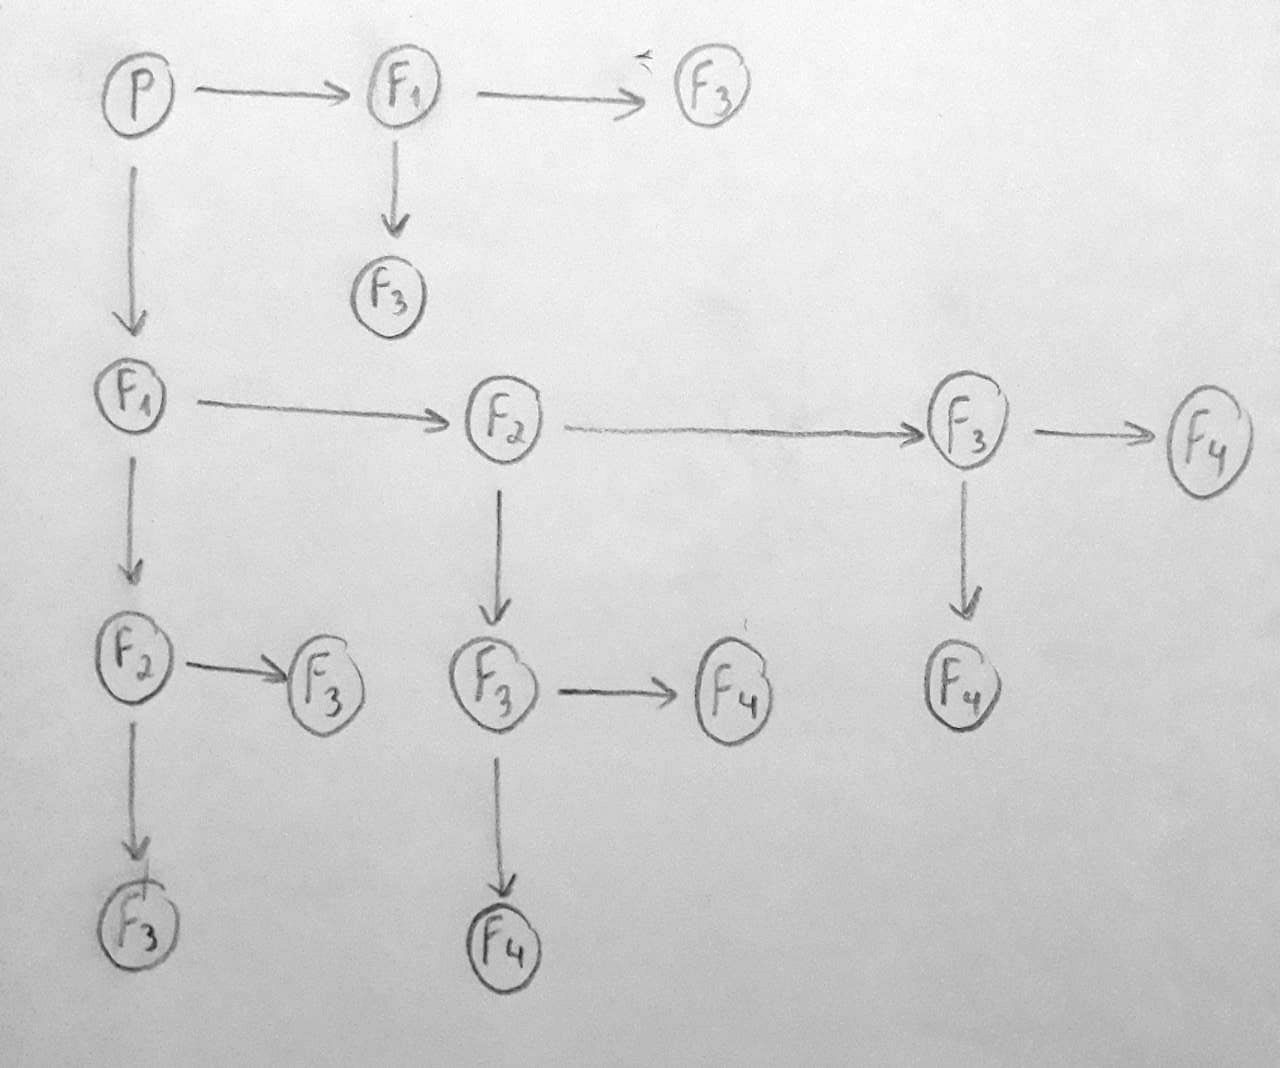 P F1 F3
F3
F1 F2 F3 F4
F2 F3 F3 F4 F4
F3 F4